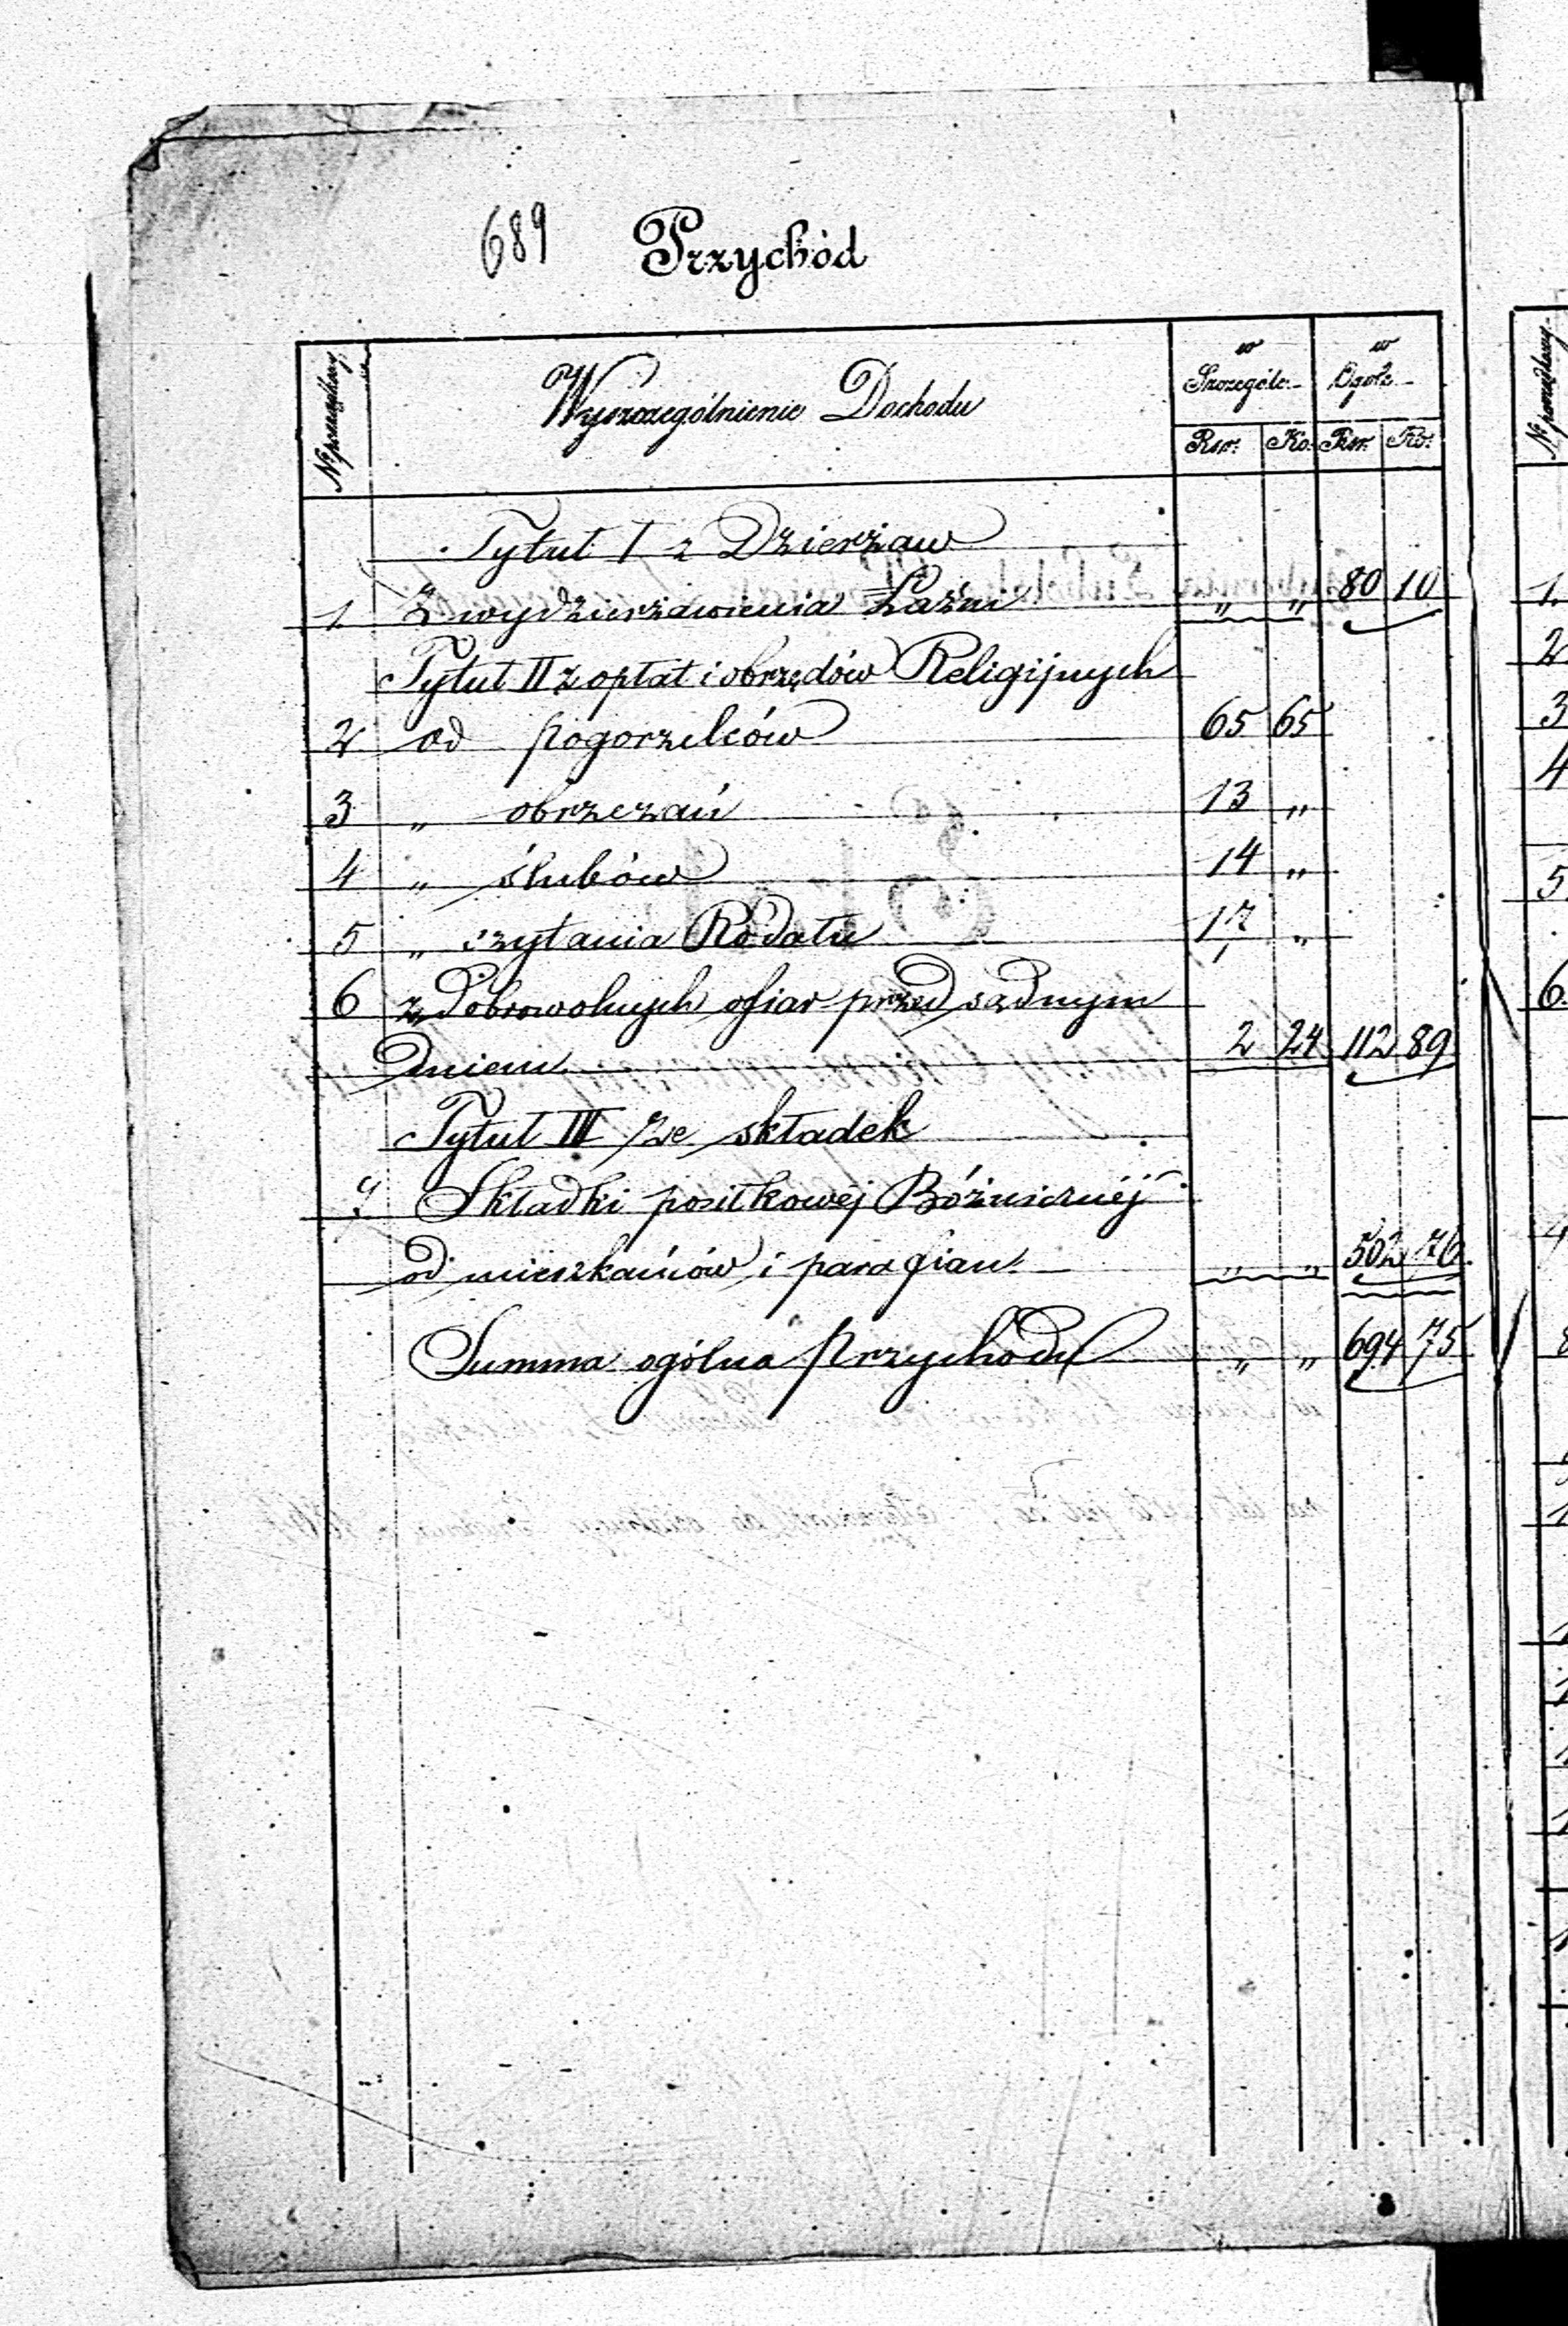 689 Przychód
Nr porządkowy
Wyszczególnienie Dochodu
w Szczególe
w Ogóle
Rsr. Ko. Rsr. Ko.
Tytuł I z Dzierżaw
1. Z wydzierżawienia Łaźni " " 80 10
Tytuł II z opłat i obrzędów Religijnych
2 od pogorzelców 65 65
3 " obrzezań 13 "
4 " ślubów 14 "
5 " czytania Rodału 17 "
6 z dobrowolnych ofiar przed sądnym
Dniem 2 24 112 89
Tytuł III ze składek
Składki posiłkowej Bóżnicznéj
od mieszkańców i parafian " " 502 76
Summa ogólna Przychodu " " 694 75
1.
2
3
4
5
6.